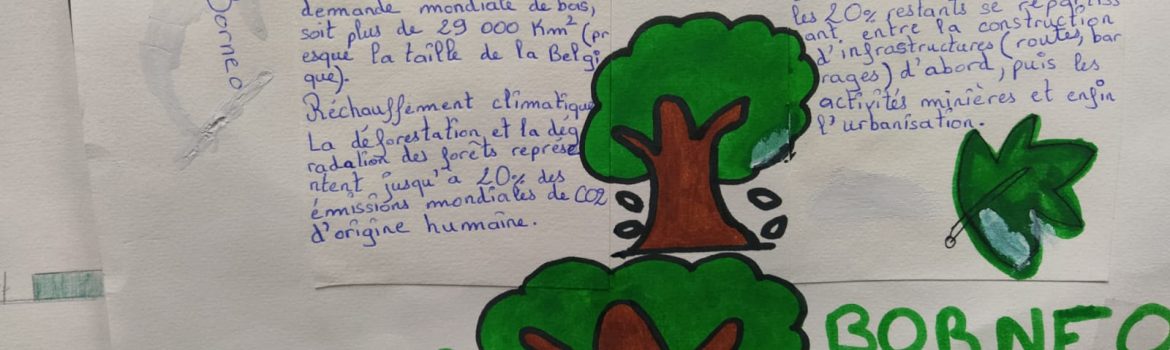 Borneo
demande mondiale de bois,
soit plus de 29 000 Km² (pr
esque la taille de la Belgi
que).
Réchauffement climatique
La déforestation et la dég
radation des forêts représe
ntent jusqu'a 20% des
émissions mondiales de CO2
d'origine humaine.
les 20% restants se répartiss
ant entre la construction
d'infrastructures (routes, bar
rages) d'abord, puis les
activités minières et enfin
l'urbanisation.
BORNEO